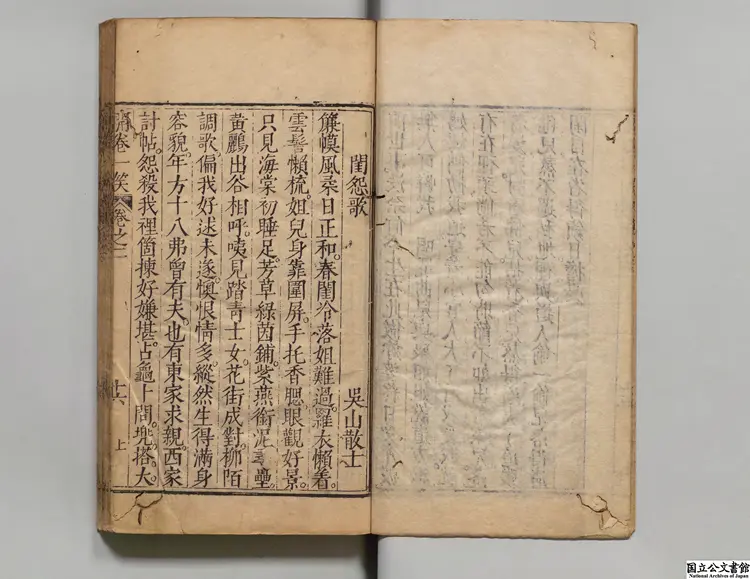 閨怨歌
吳山散士
簾幙風柔日正和。春閨冷落姐難過。羅衣懶着。
雲髻懶梳。姐兒身靠圍屏。手托香腮眼觀好景
只見海棠初睡足。芳草綠茵鋪。紫燕銜泥壘。
黃鸝出谷相呼。咦見踏青士女。花街成對。柳陌
調歌。偏我好逑未遂。懊恨情多。縱然生得滿身
容貌。年方十八弗曾有夫。也有東家求親。西家
討帖。怨殺我裡箇揀好嫌堪。占龜卜問。兜搭大。
卷一笑 卷之二
十六
上
国立公文書館
National Archives of Japan